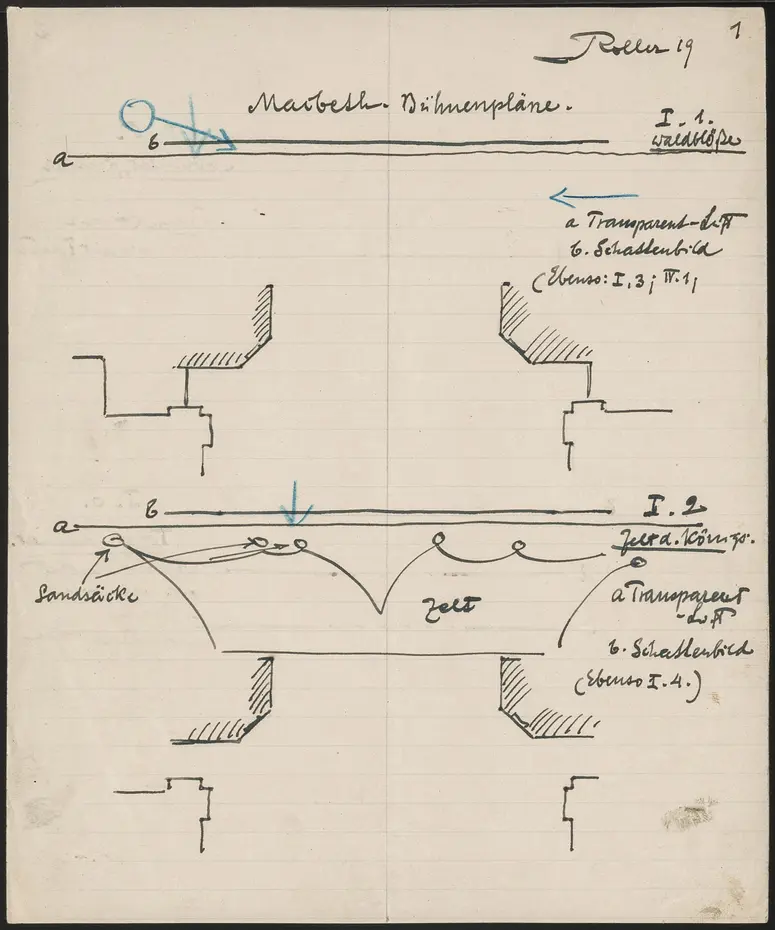 1
Roller 19
Macbeth. Bühnenpläne.
I. 1.
Waldblöße
b
a
a Transparent-Luft
b. Schattenbild
(Ebenso: I, 3; IV. 1;
b
a
I. 2
Zelt d. Königs.
Sandsäcke
Zelt
a Transparent
-Luft
b. Schattenbild
(Ebenso I. 4.)